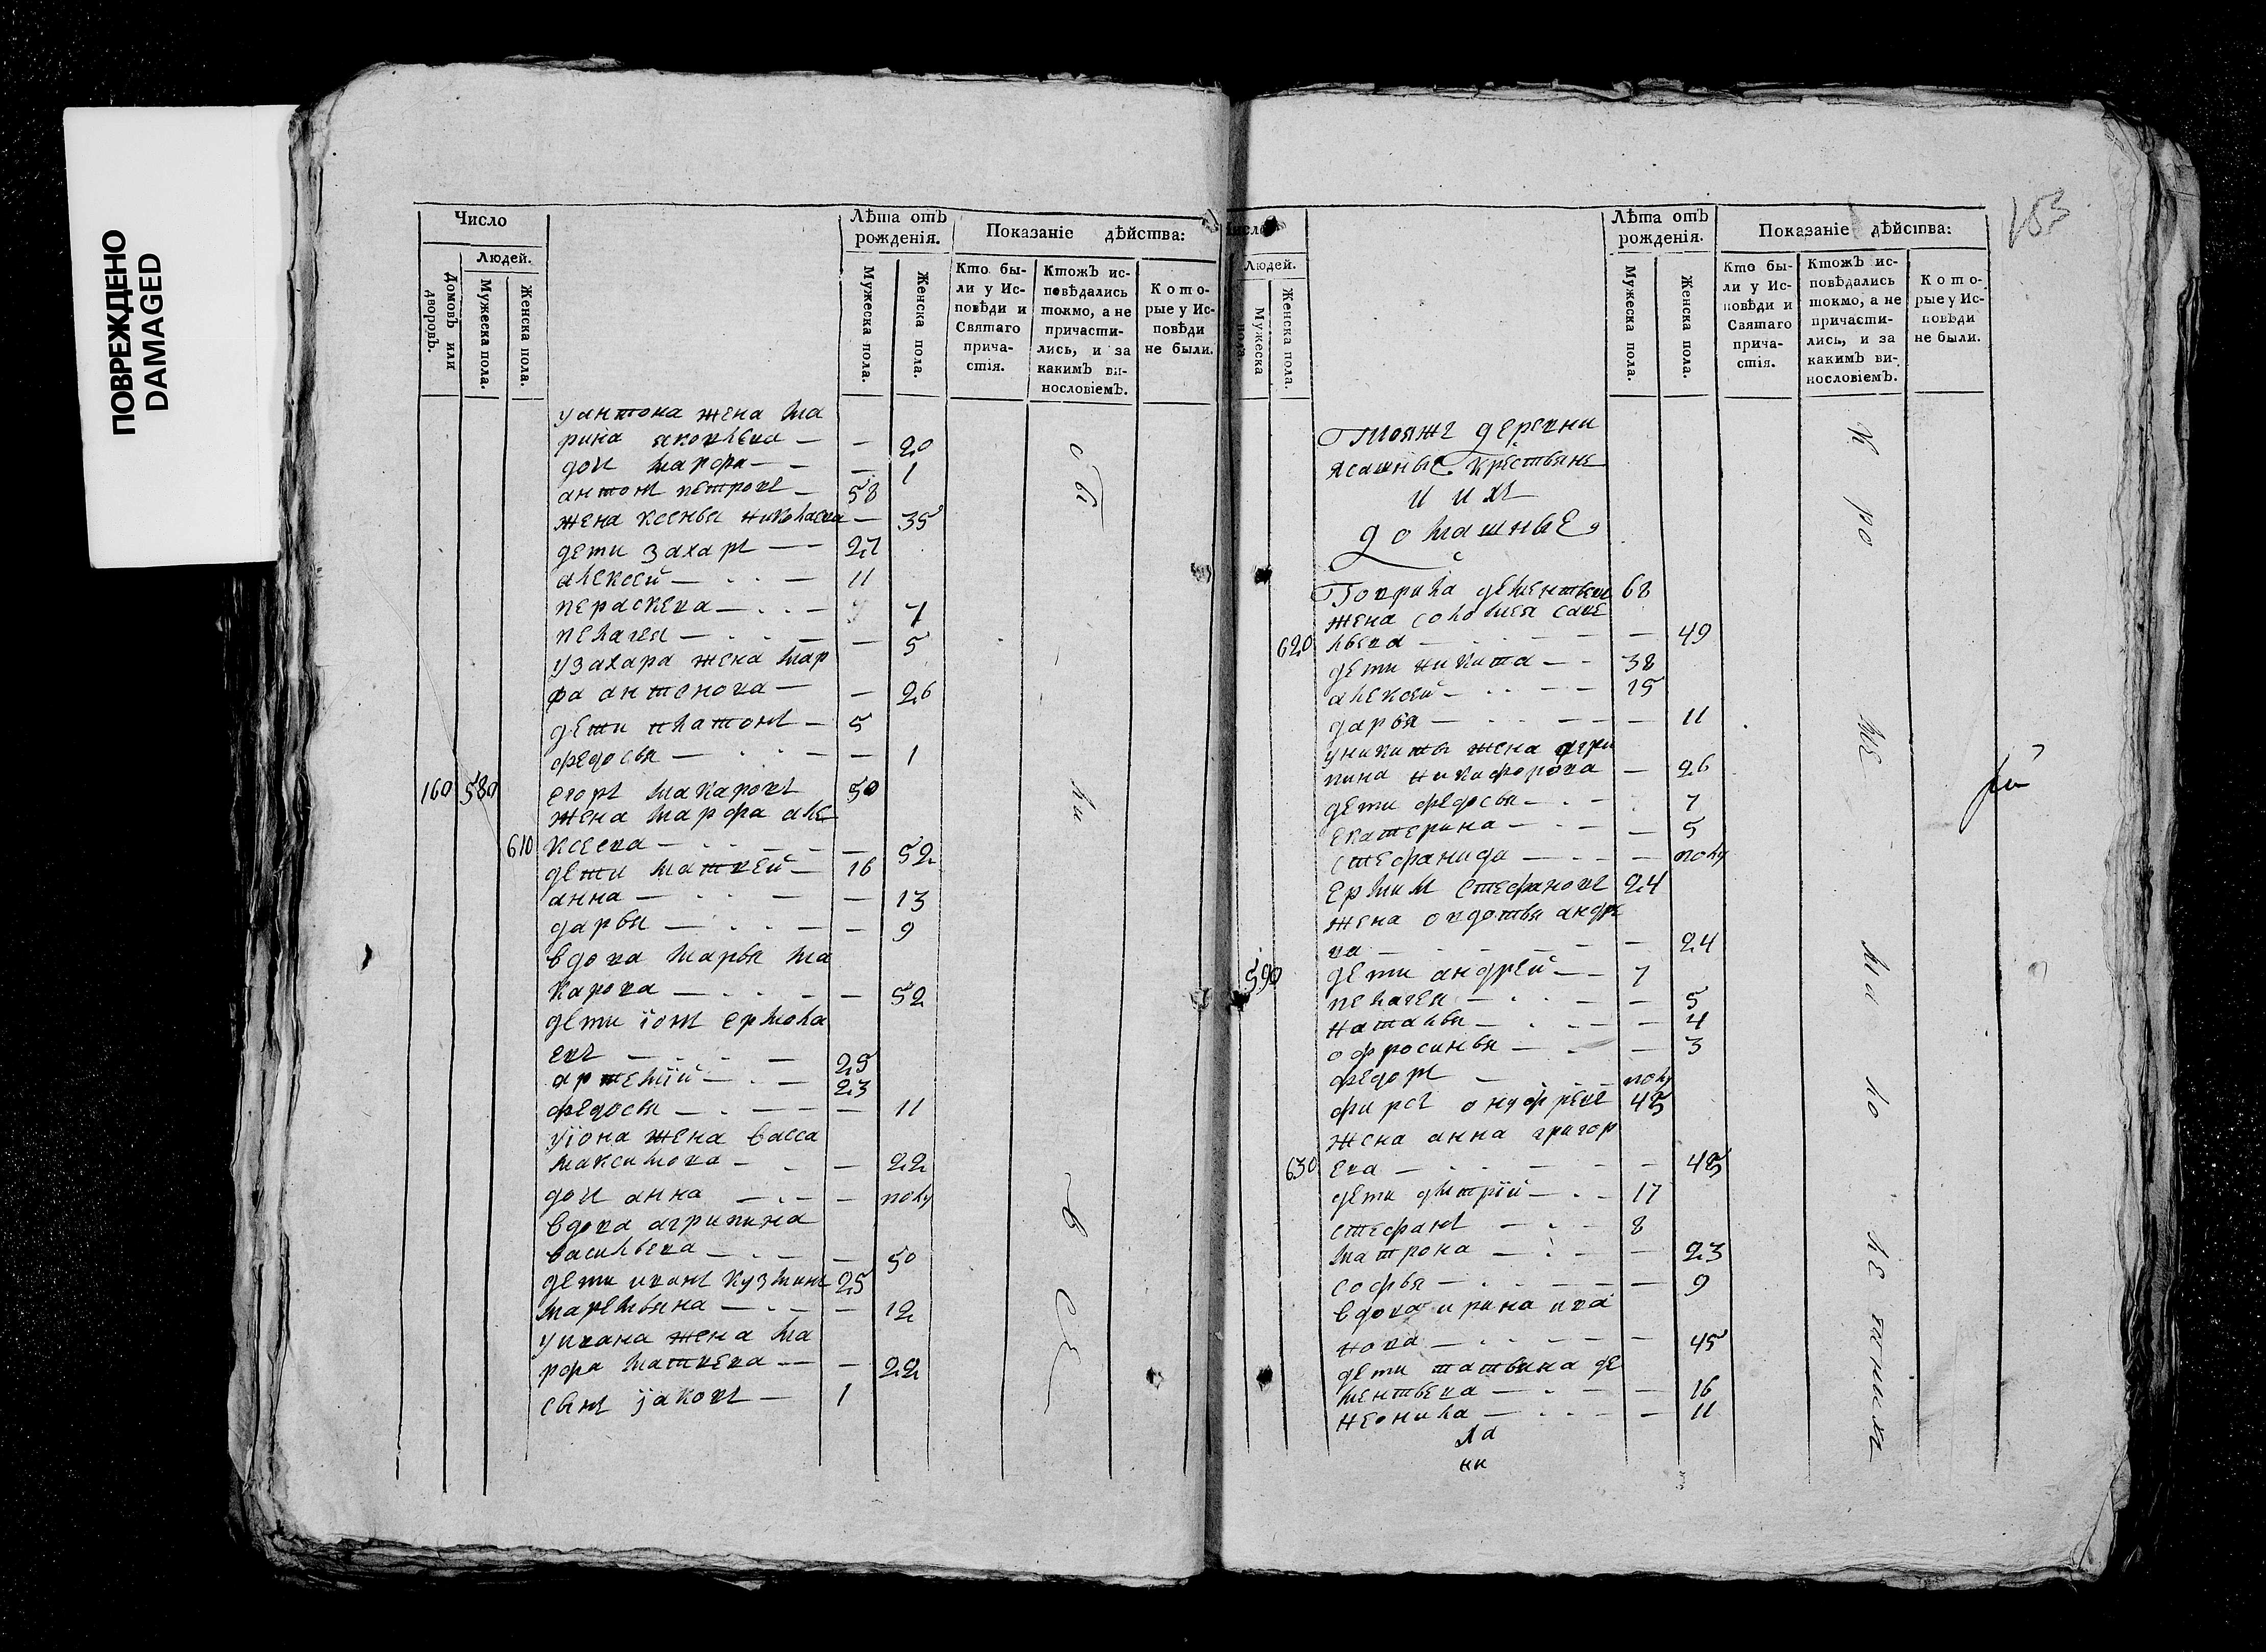 ПОВРЕЖДЕНО
DAMAGED
Число
Людей.
Домовъ или дворовъ.
Мужеска пола.
Женска пола.
Лѣта отъ рожденія.
Мужеска пола.
Женска пола.
Показаніе дѣйства:
Кто бы-
ли у Ис-
повѣди и
Святаго
прича-
стія.
Ктожъ ис-
повѣдались
токмо, а не
причасти-
лись, и за
какимъ ви-
нословіемъ.
Кото-
рые у Ис-
повѣди
не были.
уантона жена ма
рина яковлева — — 20
дочь марфа — — 1
антонъ петровъ — 58
жена ксенья николаева — 35
дети захаръ — — 27
алексей — — 11
пераскева — — 7
пелагея — — 5
узахара жена мар
фа антонова — — 26
дети платонъ — 5
федосья — — 1
160 580 егоръ макаровъ 50
жена марфа але
610 ксеева — — 52
дети матвей — 16
анна — — 13
дарья — — 9
вдова марья ма
карова — — 52
дети іонъ ермола
евъ — — 25
артемій — — 23
федосья — — 11
уіона жена васса
максимова — — 22
дочь анна — — полу
вдова агрипина
васильева — — 50
дети иванъ кузминъ 25
маремьяна — — 12
уивана жена ма
рфа матвеева — — 22
сынъ јаковъ — 1
о бы
ли
в
се
153
Число
Людей.
Мужеска пола.
Женска пола.
Лѣта отъ рожденія.
Мужеска пола.
Женска пола.
Показаніе дѣйства:
Кто бы-
ли у Ис-
повѣди и
Святаго
прича-
стія.
Ктожъ ис-
повѣдались
токмо, а не
причасти-
лись, и за
какимъ ви-
нословіемъ.
Кото-
рые у Ис-
повѣди
не были.
Тояжъ деревни
ясашные крестьяне
и ихъ
домашные
Гаврила дементьевъ 68
жена соломея саве
620 льева — — 49
дети никита — — 38
алексей — — 15
дарья — — 11
уникиты жена агри
пина никифорова — 26
дети федосья — — 7
екатерина — — 5
стефанида — — полу
ермил стефановъ 24
жена овдотья андре
ва — — 24
590 дети андрей — — 7
пелагея — — 5
наталья — — 4
офросинья — — 3
федоръ — — полу
фирсъ онуфревъ 45
жена анна григор
630 ева — — 45
дети дмитрій — — 17
стефанъ — — 8
матрона — — 23
софья — — 9
вдова ирина ива
нова — — 45
дети татьяна де
ментьева — — 16
неонила — — 11
ла
ни
к ро
ме
ма ло
ле тнихъ